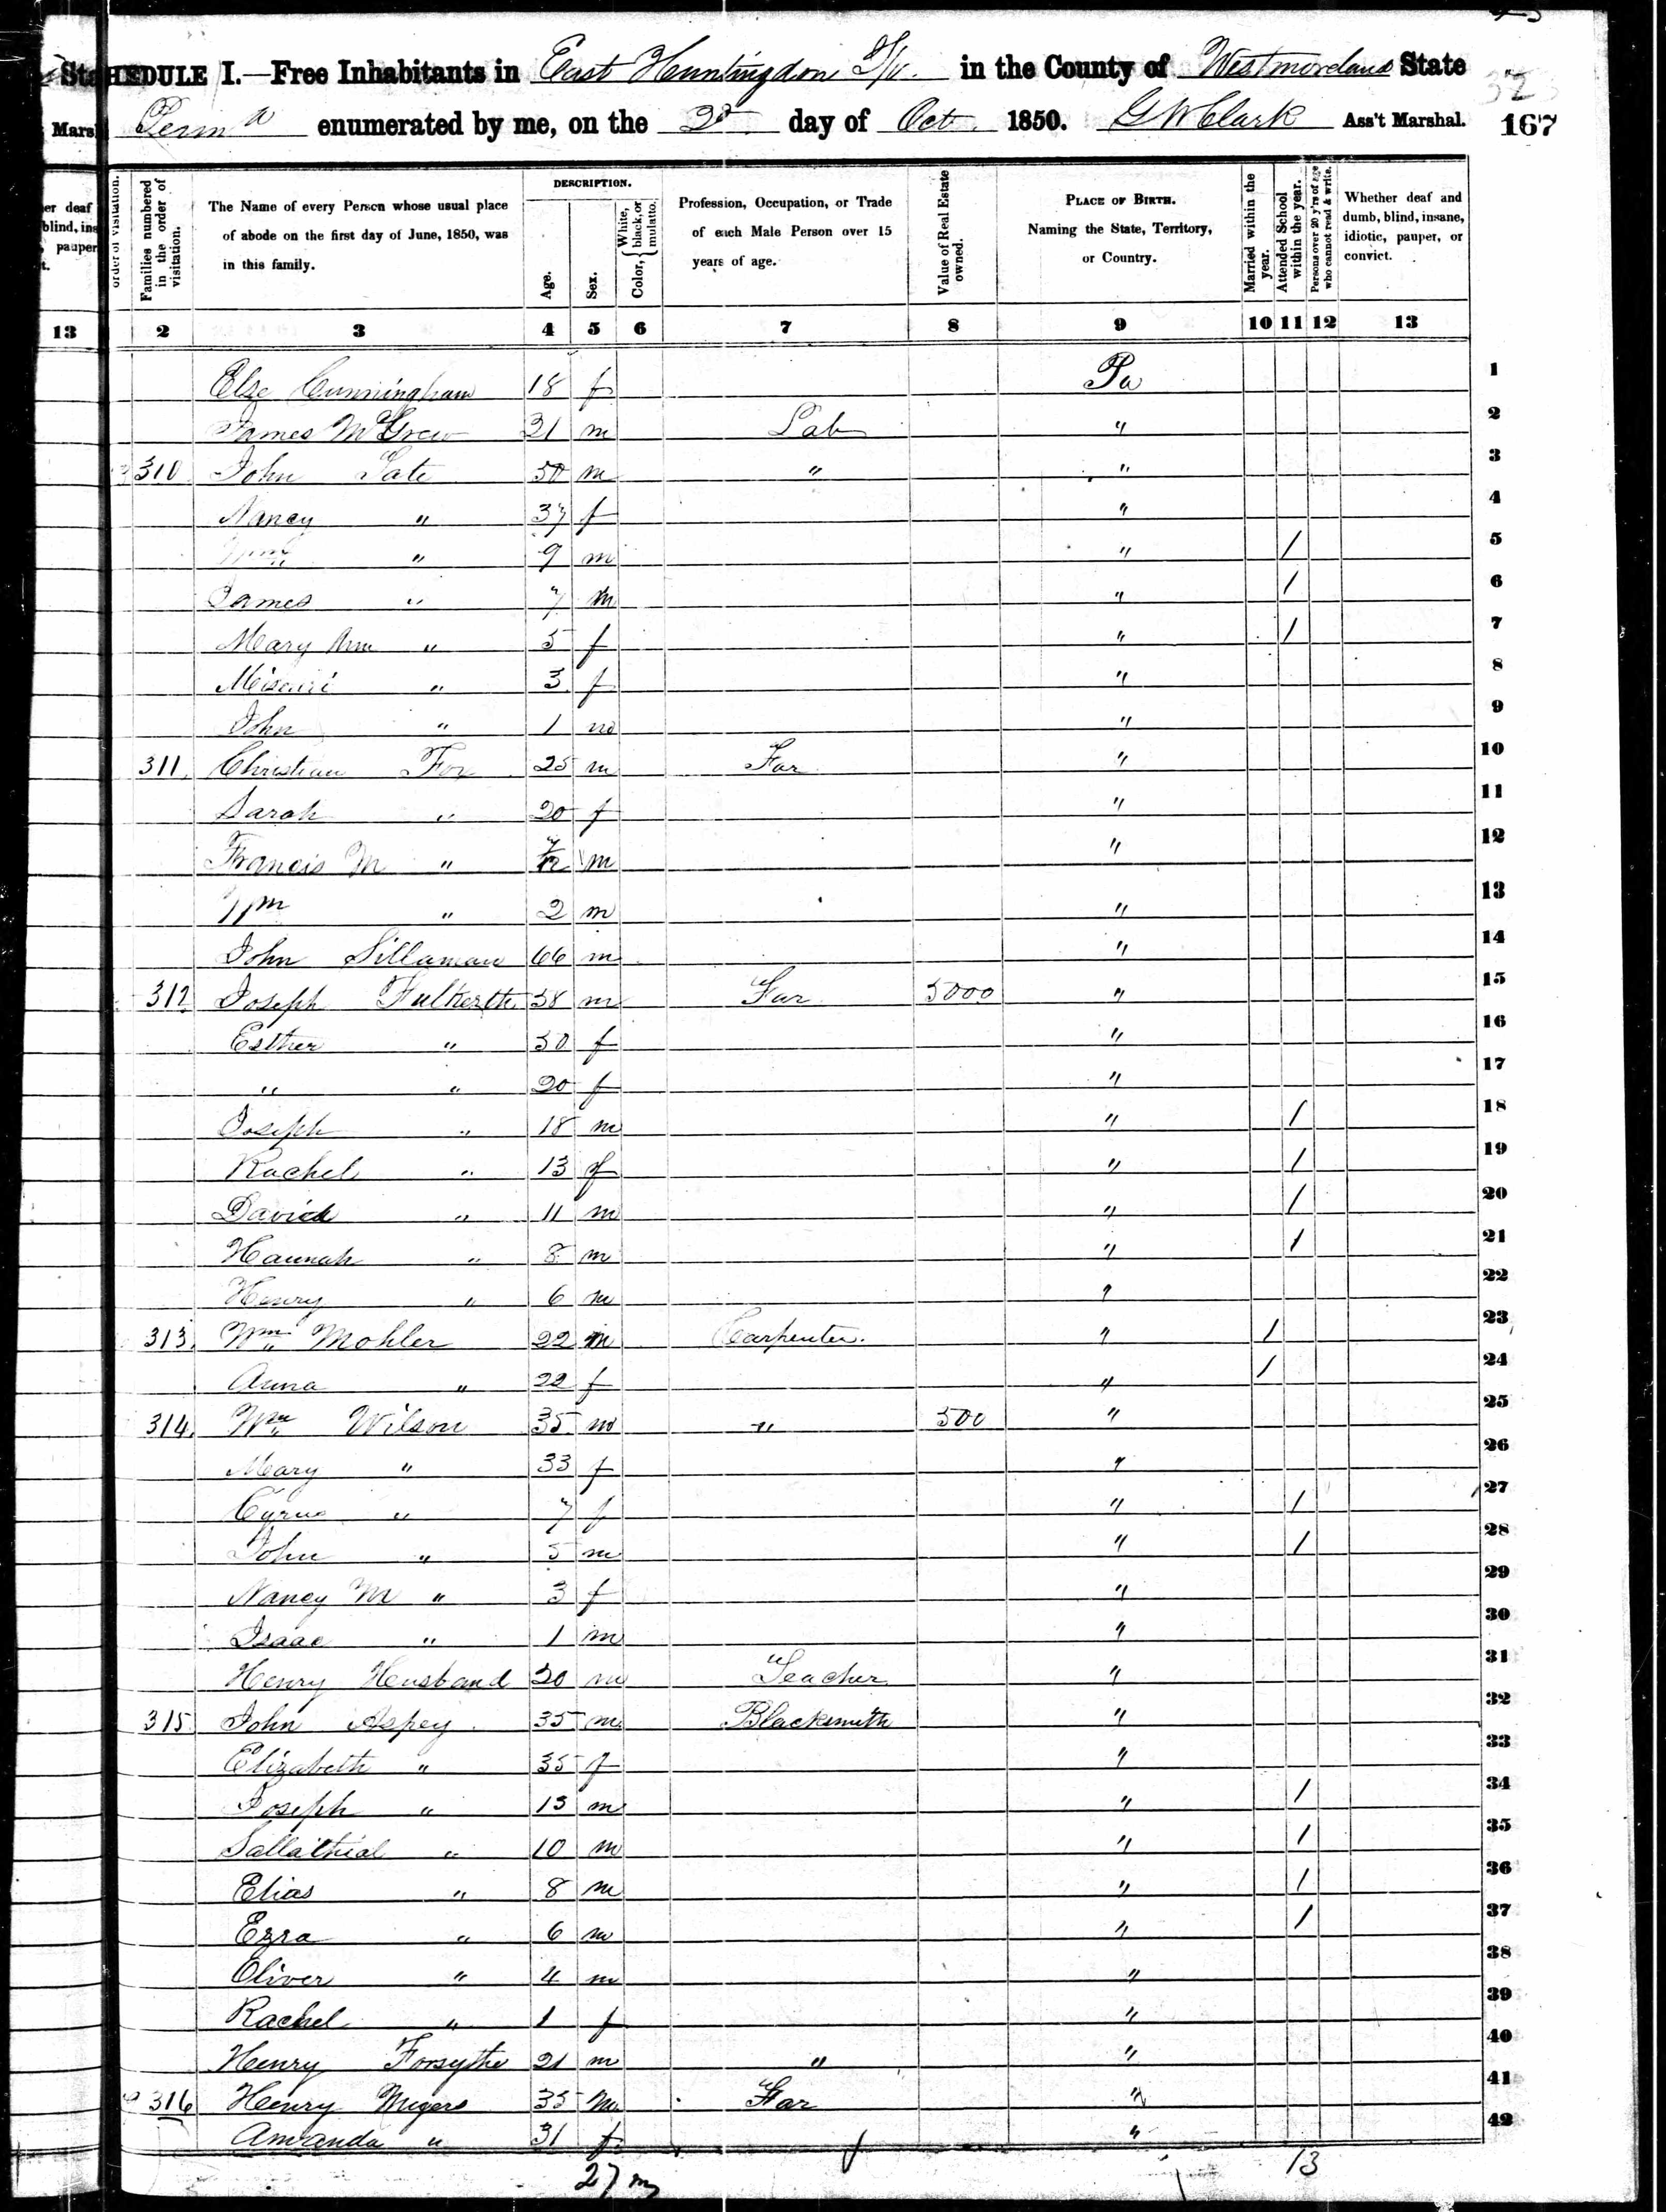 SCHEDULE I.—Free Inhabitants in East Huntingdon T/p. in the County of Westmoreland State
Penna enumerated by me, on the 2d day of Oct 1850. G W Clark Ass't Marshal. 167
Families numbered in the order of visitation.
The Name of every Person whose usual place of abode on the first day of June, 1850, was in this family.
DESCRIPTION.
Age.
Sex.
Color, { White, black, or mulatto.
Profession, Occupation, or Trade of each Male Person over 15 years of age.
Value of Real Estate owned.
PLACE OF BIRTH. Naming the State, Territory, or Country.
Married within the year.
Attended School within the year.
Persons over 20 y'rs of age who cannot read & write.
Whether deaf and dumb, blind, insane, idiotic, pauper, or convict.
13 2 3 4 5 6 7 8 9 10 11 12 13
Else Cunningham 18 f Pa 1
James McGrew 21 m Lab " 2
310 John Tate 50 m " " 3
Nancy " 37 f " 4
Wm " 9 m " / 5
James " 7 m " / 6
Mary Ann " 5 f " / 7
Misouri " 3 f " 8
John " 1 m " 9
311 Christian Fox 25 m Far " 10
Sarah " 20 f " 11
Francis M " m " 12
Wm " 2 m " 13
John Sillaman 66 m " 14
312 Joseph Fulkerth 58 m Far 5000 " 15
Esther " 50 f " 16
" " 20 f " 17
Joseph " 18 m " / 18
Rachel " 13 f " / 19
David " 11 m " / 20
Hannah " 8 m " / 21
Henry " 6 m " 22
313 Wm Mohler 22 m Carpenter " / 23
Anna " 22 f " / 24
314 Wm Wilson 35 m " 500 " 25
Mary " 33 f " 26
Cyrus " 7 f " / 27
John " 5 m " / 28
Nancy M " 3 f " 29
Isaac " 1 m " 30
Henry Husband 20 m Teacher " 31
315 John Aspey 35 m Blacksmith " 32
Elizabeth " 35 f " 33
Joseph " 13 m " / 34
Sallathial " 10 m " / 35
Elias " 8 m " / 36
Ezra " 6 m " / 37
Oliver " 4 m " 38
Rachel " 1 f " 39
Henry Forsythe 21 m " " 40
316 Henry Miyers 35 m Far " 41
Amanda " 31 f " 42
27 m 13